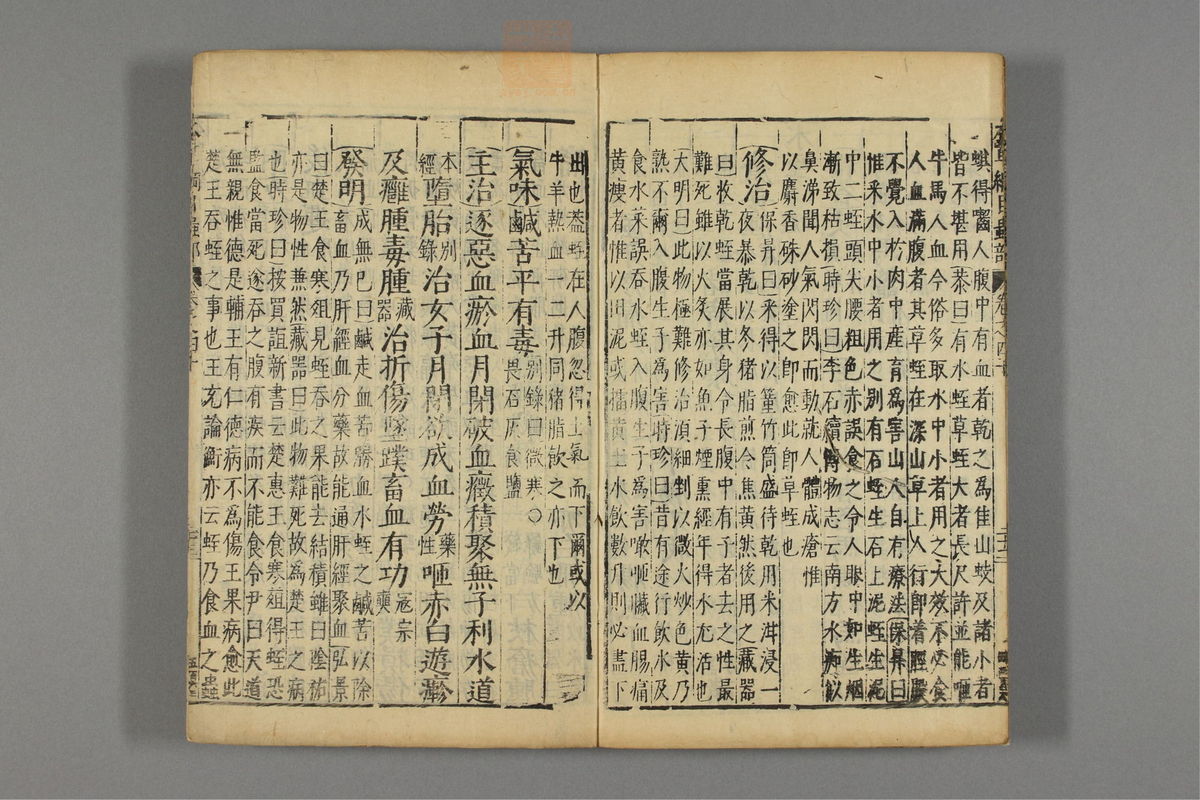 蜞得囓人腹中有血者乾之為佳山蚑及諸小者
皆不堪用恭曰有水蛭草蛭大者長尺許並能咂
牛馬人血今俗多取水中小者用之大效不必食
人血滿腹者其草蛭在深山草上人行即着脛股
不覺入於肉中產育為害山人自有療法保昇曰
惟采水中小者用之別有石蛭生石上泥蛭生泥
中二蛭頭尖腰粗色赤誤食之令人眼中如生烟
漸致枯損時珍曰李石續博物志云南方水痴似
鼻涕聞人氣閃閃而動就人體成瘡惟
以麝香硃砂塗之即愈此即草蛭也
修治保昇曰采得以䈽竹筒盛待乾用米泔浸一
夜暴乾以冬猪脂煎令焦黃然後用之藏器
曰收乾蛭當展其身令長腹中有子者去之性最
難死雖以火炙亦如魚子煙熏經年得水尤活也
大明曰此物極難修治須細剉以微火炒色黃乃
熟不爾入腹生子為害時珍曰昔有途行飲水及
食水菜誤吞水蛭入腹生子為害噉咂臟血腸痛
黃瘦者惟以田泥或擂黃土水飲數升則必盡下
出也蓋蛭在人腹忽得土氣而下爾或以
牛羊熱血一二升同猪脂飲之亦下也
氣味鹹苦平有毒別錄曰微寒○畏石灰食鹽
主治逐惡血瘀血月閉破血癥積聚無子利水道
本經墮胎別錄治女子月閉欲成血勞藥性咂赤白遊𤺋
及癰腫毒腫藏器治折傷墜蹼畜血有功寇宗奭
發明成無已曰鹹走血苦勝血水蛭之鹹苦以除
畜血乃肝經血分藥故能通肝經聚血弘景
曰楚王食寒葅見蛭吞之果能去結積雖曰陰祐
亦是物性兼然藏器曰此物難死故為楚王之病
也時珍曰按賈誼新書云楚惠王食寒葅得蛭恐
監食當死遂吞之腹有疾而不能食令尹曰天道
無親惟德是輔王有仁德病不為傷王果病愈此
楚王吞蛭之事也王充論衡亦云蛭乃食血之蟲